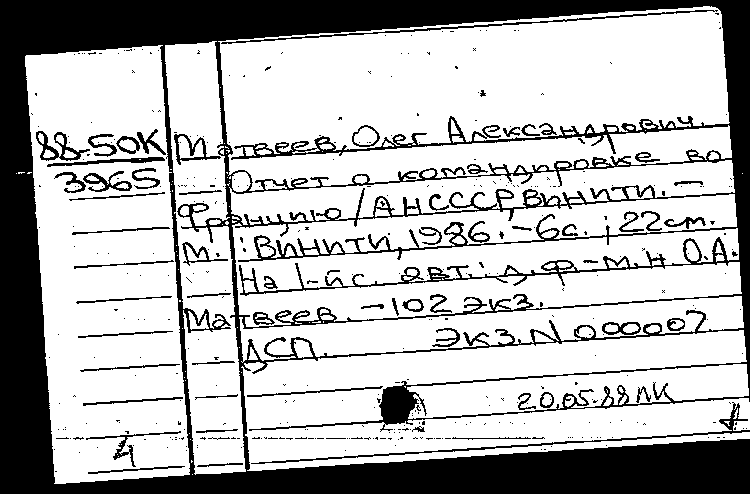 88-50К Матвеев, Олег Александрович.
3965 Отчет о командировке во
Францию / АН СССР, ВИНИТИ. —
М. : ВИНИТИ, 1986. - 6с. ; 22см.
На 1-й с. авт.: д.ф.-м.н. О.А.
Матвеев. - 102 экз.
ДСП. Экз. N 000007
20.05.88
4